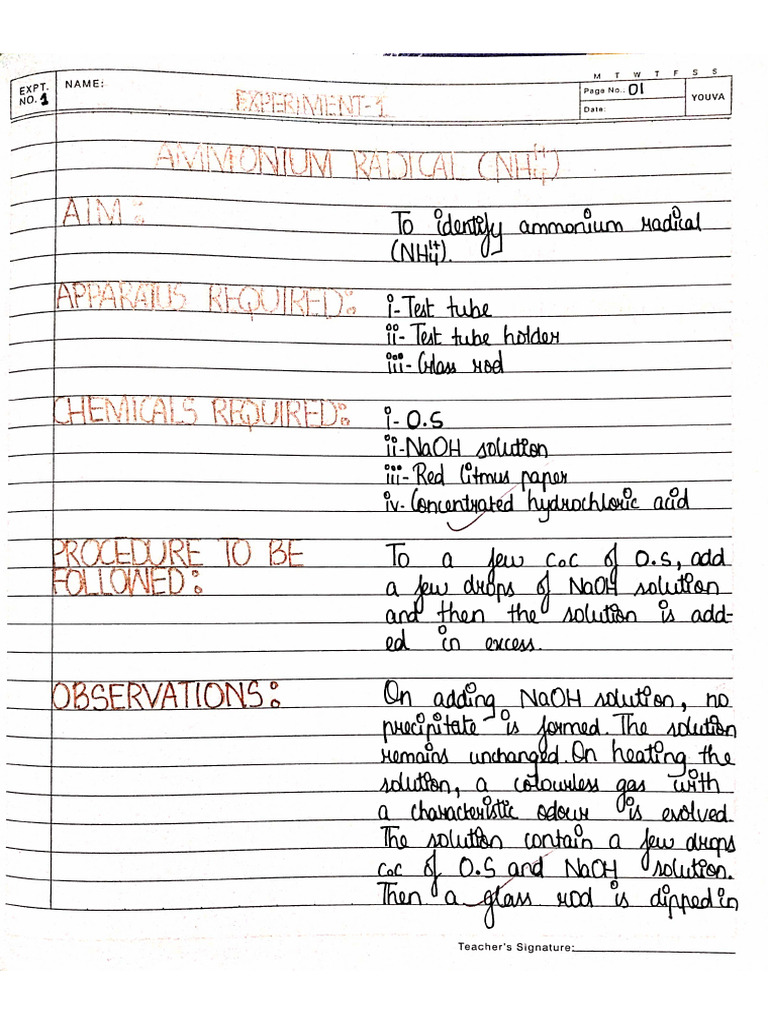 M T W T F S S
EXPT. NO. 1
NAME:
Page No.: 01
Date:
YOUVA
EXPERIMENT-1
AMMONIUM RADICAL (NH₄¹⁺)
AIM:
To identify ammonium radical
(NH₄¹⁺).
APPARATUS REQUIRED:
i- Test tube
ii- Test tube holder
iii- Glass rod
CHEMICALS REQUIRED:
i- O.S
ii- NaOH solution
iii- Red Litmus paper
iv- Concentrated hydrochloric acid
PROCEDURE TO BE
FOLLOWED:
To a few c.c of O.S, add
a few drops of NaOH solution
and then the solution is add-
ed in excess.
OBSERVATIONS:
On adding NaOH solution, no
precipitate is formed. The solution
remains unchanged. On heating the
solution, a colourless gas with
a characteristic odour is evolved.
The solution contain a few drops
c.c of O.S and NaOH solution.
Then a glass rod is dipped in
Teacher's Signature: